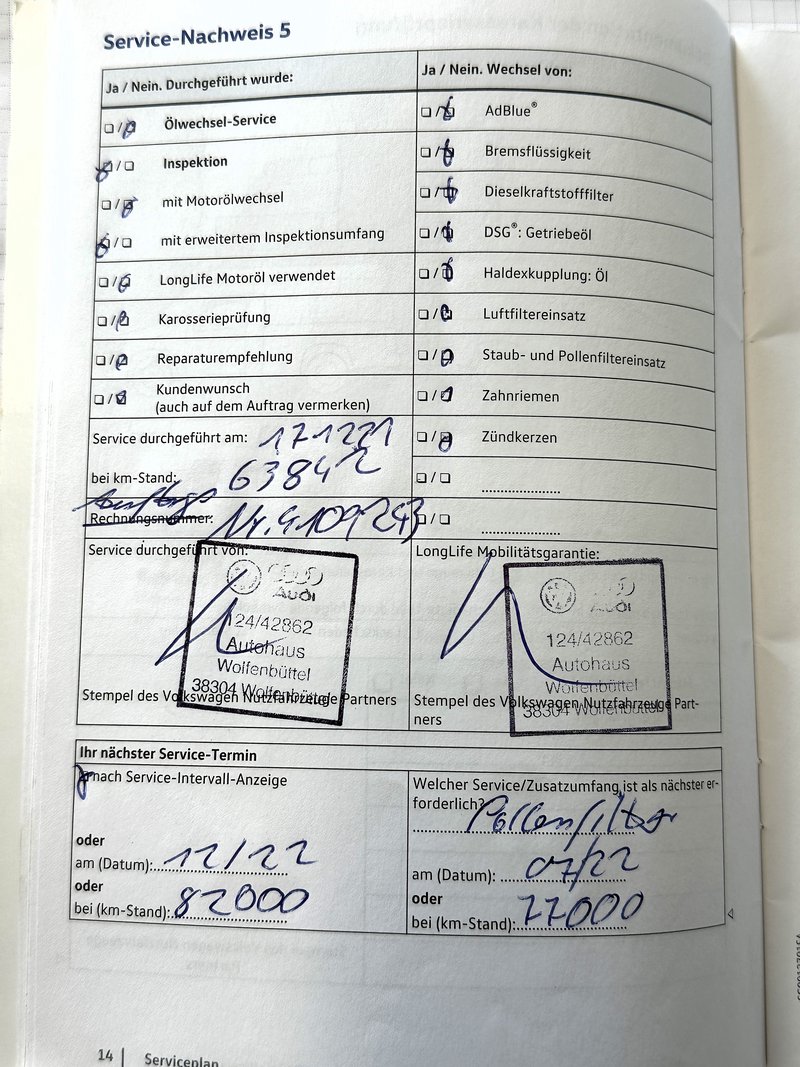 Service-Nachweis 5
Ja / Nein. Durchgeführt wurde:
Ölwechsel-Service
Inspektion
mit Motorölwechsel
mit erweitertem Inspektionsumfang
LongLife Motoröl verwendet
Karosserieprüfung
Reparaturempfehlung
Kundenwunsch
(auch auf dem Auftrag vermerken)
Service durchgeführt am: 171221
bei km-Stand: 63842
Auftrags
Rechnungsnummer: Nr.
Ja / Nein. Wechsel von:
AdBlue®
Bremsflüssigkeit
Dieselkraftstofffilter
DSG®: Getriebeöl
Haldexkupplung: Öl
Luftfiltereinsatz
Staub- und Pollenfiltereinsatz
Zahnriemen
Zündkerzen
Service durchgeführt von:
Audi
124/42862
Autohaus
Wolfenbüttel
38304 Wolfenbüttel
Stempel des Volkswagen Nutzfahrzeuge Partners
LongLife Mobilitätsgarantie:
Audi
124/42862
Autohaus
Wolfenbüttel
38304 Wolfenbüttel
Stempel des Volkswagen Nutzfahrzeuge Part-
ners
Ihr nächster Service-Termin
nach Service-Intervall-Anzeige
oder
am (Datum): 12/22
oder
bei (km-Stand): 82000
Welcher Service/Zusatzumfang ist als nächster er-
forderlich? Pollenfilter
am (Datum): 07/22
oder
bei (km-Stand): 77000
14 | Serviceplan